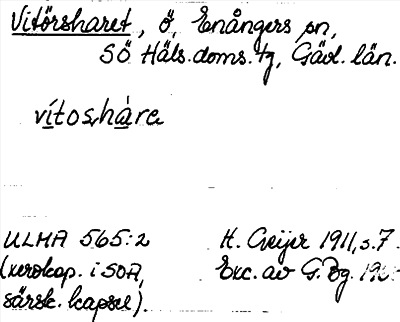 Vitörsharet, ö, Enångers sn,
SÖ Häls. doms. tg, Gävl. län.
vítoshàra
ULMA 565:2 H. Geijer 1911, s. 7.
(xeroxkop. i SOA, Exc. av G. Bg.
särsk. kapsel).